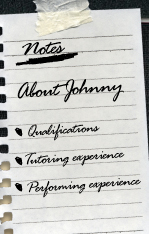 Notes
About Johnny
Qualifications
Tutoring experience
Performing experience